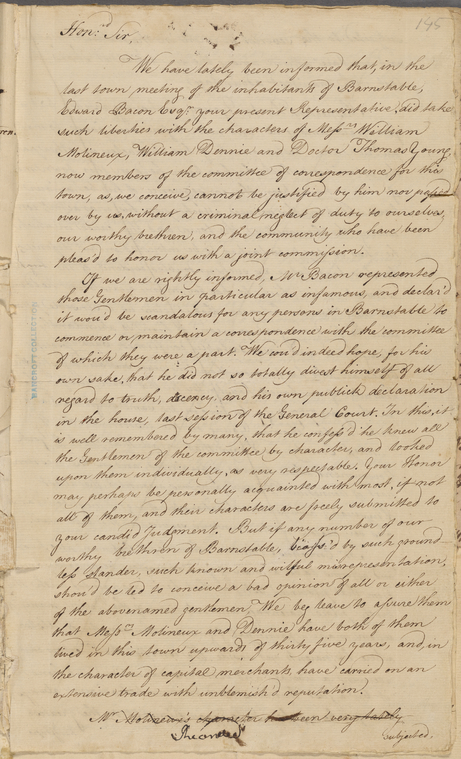 145
Hon.d Sir,
We have lately been informed that, in the
last town meeting of the inhabitants of Barnstable,
Edward Bacon Esqr. your present Representative, did take
such liberties with the characters of Messrs William
Molineux, William Dennie and Doctor Thomas Young,
now members of the committee of correspondence for this
town, as, we conceive, cannot be justified by him nor passed
over by us, without a criminal neglect of duty to ourselves,
our worthy brethren, and the community who have been
pleas'd to honor us with a joint commission.
If we are rightly informed, Mr Bacon represented
those Gentlemen in particular as infamous, and declar'd
it wou'd be scandalous for any persons in Barnstable to
commence or maintain a correspondence with the committee
of which they were a part. We cou'd indeed hope, for his
own sake, that he did not so totally divest himself of all
regard to truth, decency, and his own publick declaration
in the house, last session of the General Court. In this, it
is well remembered by many, that he confess'd he knew all
the Gentlemen of the committee by character, and looked
upon them individually, as very respectable. Your Honor
may perhaps be personally acquainted with most, if not
all of them, and their characters are freely submitted to
your candid Judgment. But if any number of our
worthy brethren of Barnstable, biass'd by such ground
less slander, such known and wilful misrepresentation,
shou'd be led to conceive a bad opinion of all or either
of the abovenamed gentlemen, We beg leave to assure them
that Messrs Molineux and Dennie have both of them
lived in this town upwards of thirty five years, and, in
the character of capital merchants, have carried on an
extensive trade with unblemish'd reputation.
Mr Molineux's character has been very lately
subjected.
BANCROFT COLLECTION